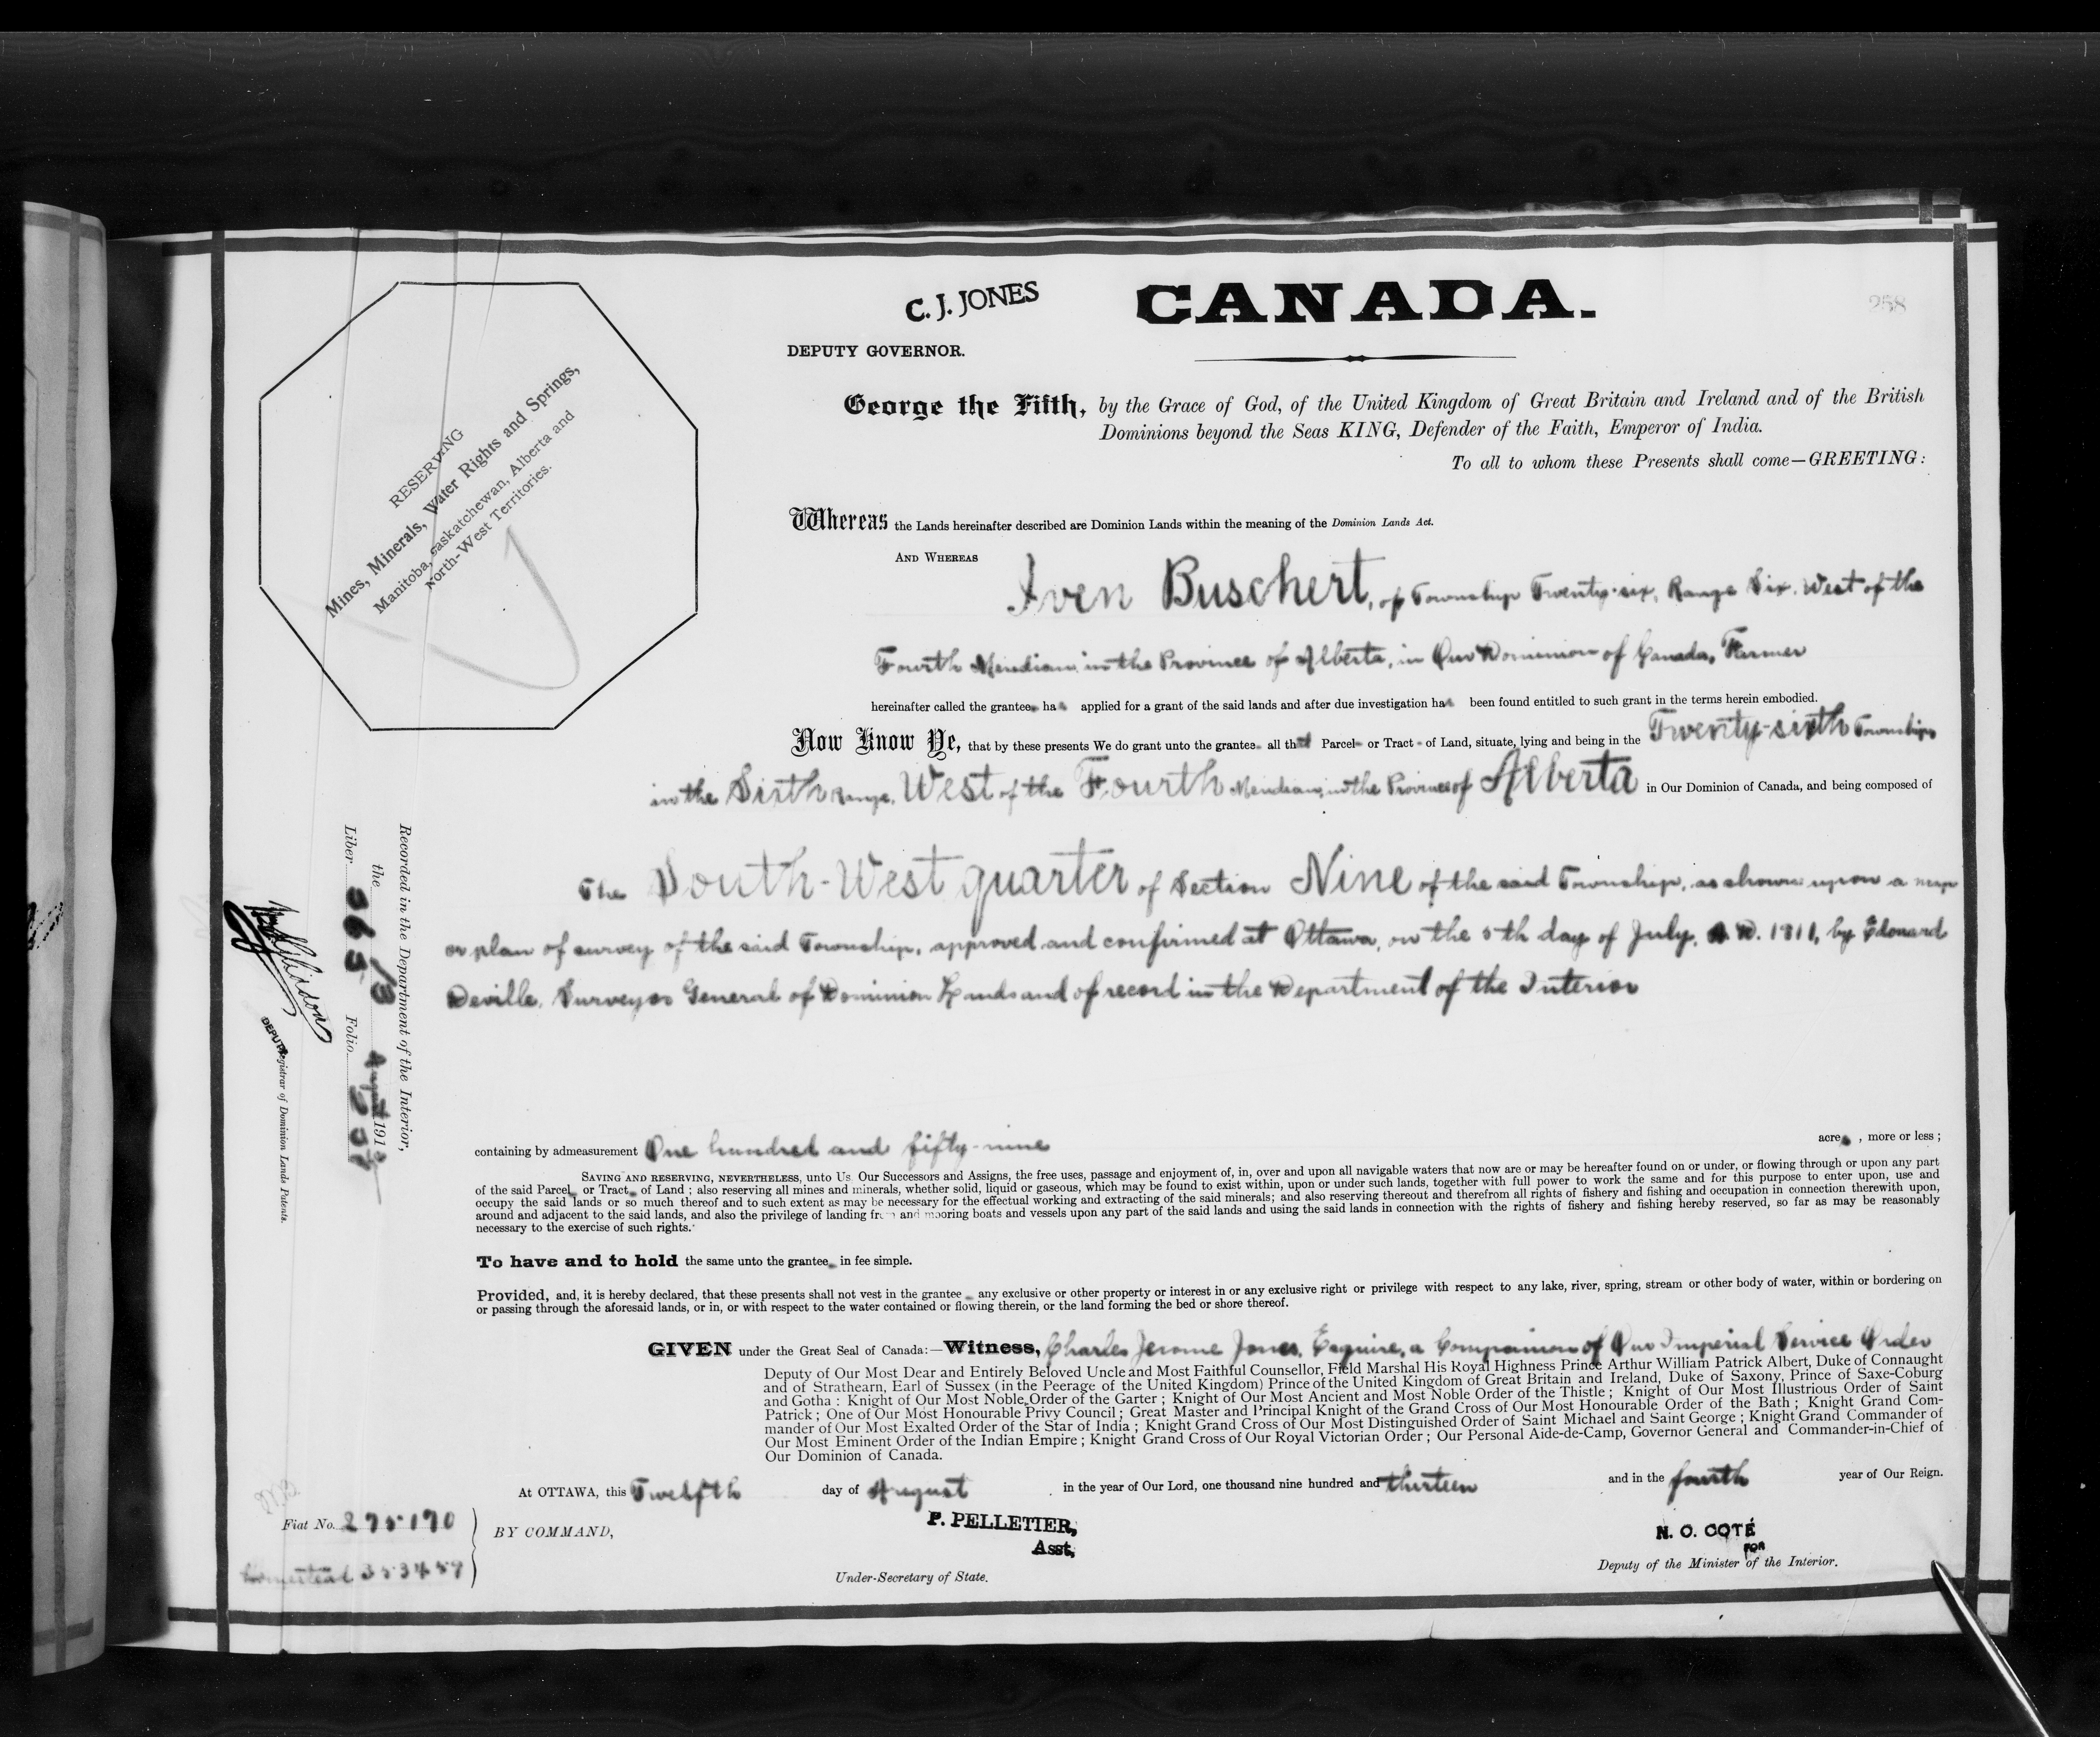 C. J. JONES
CANADA.
258
DEPUTY GOVERNOR.
RESERVING
Mines, Minerals, Water Rights and Springs,
Manitoba, Saskatchewan, Alberta and
North-West Territories.
George the Fifth, by the Grace of God, of the United Kingdom of Great Britain and Ireland and of the British
Dominions beyond the Seas KING, Defender of the Faith, Emperor of India.
To all to whom these Presents shall come—GREETING:
Whereas the Lands hereinafter described are Dominion Lands within the meaning of the Dominion Lands Act.
AND WHEREAS
Iven Buschert, of Township Twenty-six, Range Six, West of the
Fourth Meridian, in the Province of Alberta, in Our Dominion of Canada, Farmer
hereinafter called the grantee ha s applied for a grant of the said lands and after due investigation ha s been found entitled to such grant in the terms herein embodied.
Now Know Ye, that by these presents We do grant unto the grantee all that Parcel or Tract of Land, situate, lying and being in the Twenty-sixth Township
in the Sixth Range, West of the Fourth Meridian, in the Province of Alberta in Our Dominion of Canada, and being composed of
The South-West quarter of Section Nine of the said Township, as shown upon a map
or plan of survey of the said Township, approved and confirmed at Ottawa, on the 5th day of July, A.D. by Edouard
Deville, Surveyor General of Dominion Lands and of record in the Department of the Interior
Recorded in the Department of the Interior,
the 13 August 1913
Liber 665 Folio
DEPUTY Registrar of Dominion Lands Patents.
containing by admeasurement One hundred and fifty-nine acre , more or less ;
SAVING AND RESERVING, NEVERTHELESS, unto Us Our Successors and Assigns, the free uses, passage and enjoyment of, in, over and upon all navigable waters that now are or may be hereafter found on or under, or flowing through or upon any part
of the said Parcel or Tract of Land ; also reserving all mines and minerals, whether solid, liquid or gaseous, which may be found to exist within, upon or under such lands, together with full power to work the same and for this purpose to enter upon, use and
occupy the said lands or so much thereof and to such extent as may be necessary for the effectual working and extracting of the said minerals; and also reserving thereout and therefrom all rights of fishery and fishing and occupation in connection therewith upon,
around and adjacent to the said lands, and also the privilege of landing from and mooring boats and vessels upon any part of the said lands and using the said lands in connection with the rights of fishery and fishing hereby reserved, so far as may be reasonably
necessary to the exercise of such rights.
To have and to hold the same unto the grantee in fee simple.
Provided, and, it is hereby declared, that these presents shall not vest in the grantee any exclusive or other property or interest in or any exclusive right or privilege with respect to any lake, river, spring, stream or other body of water, within or bordering on
or passing through the aforesaid lands, or in, or with respect to the water contained or flowing therein, or the land forming the bed or shore thereof.
GIVEN under the Great Seal of Canada:—Witness, Charles Jerome Jones, Esquire, a Companion of Our Imperial Service Order
Deputy of Our Most Dear and Entirely Beloved Uncle and Most Faithful Counsellor, Field Marshal His Royal Highness Prince Arthur William Patrick Albert, Duke of Connaught
and of Strathearn, Earl of Sussex (in the Peerage of the United Kingdom) Prince of the United Kingdom of Great Britain and Ireland, Duke of Saxony, Prince of Saxe-Coburg
and Gotha : Knight of Our Most Noble Order of the Garter ; Knight of Our Most Ancient and Most Noble Order of the Thistle ; Knight of Our Most Illustrious Order of Saint
Patrick ; One of Our Most Honourable Privy Council ; Great Master and Principal Knight of the Grand Cross of Our Most Honourable Order of the Bath ; Knight Grand Com-
mander of Our Most Exalted Order of the Star of India ; Knight Grand Cross of Our Most Distinguished Order of Saint Michael and Saint George ; Knight Grand Commander of
Our Most Eminent Order of the Indian Empire ; Knight Grand Cross of Our Royal Victorian Order ; Our Personal Aide-de-Camp, Governor General and Commander-in-Chief of
Our Dominion of Canada.
At OTTAWA, this Twelfth day of August in the year of Our Lord, one thousand nine hundred and thirteen and in the fourth year of Our Reign.
Fiat No. 275170
Homestead
BY COMMAND,
P. PELLETIER,
Asst,
Under-Secretary of State.
N. O. COTÉ
FOR
Deputy of the Minister of the Interior.